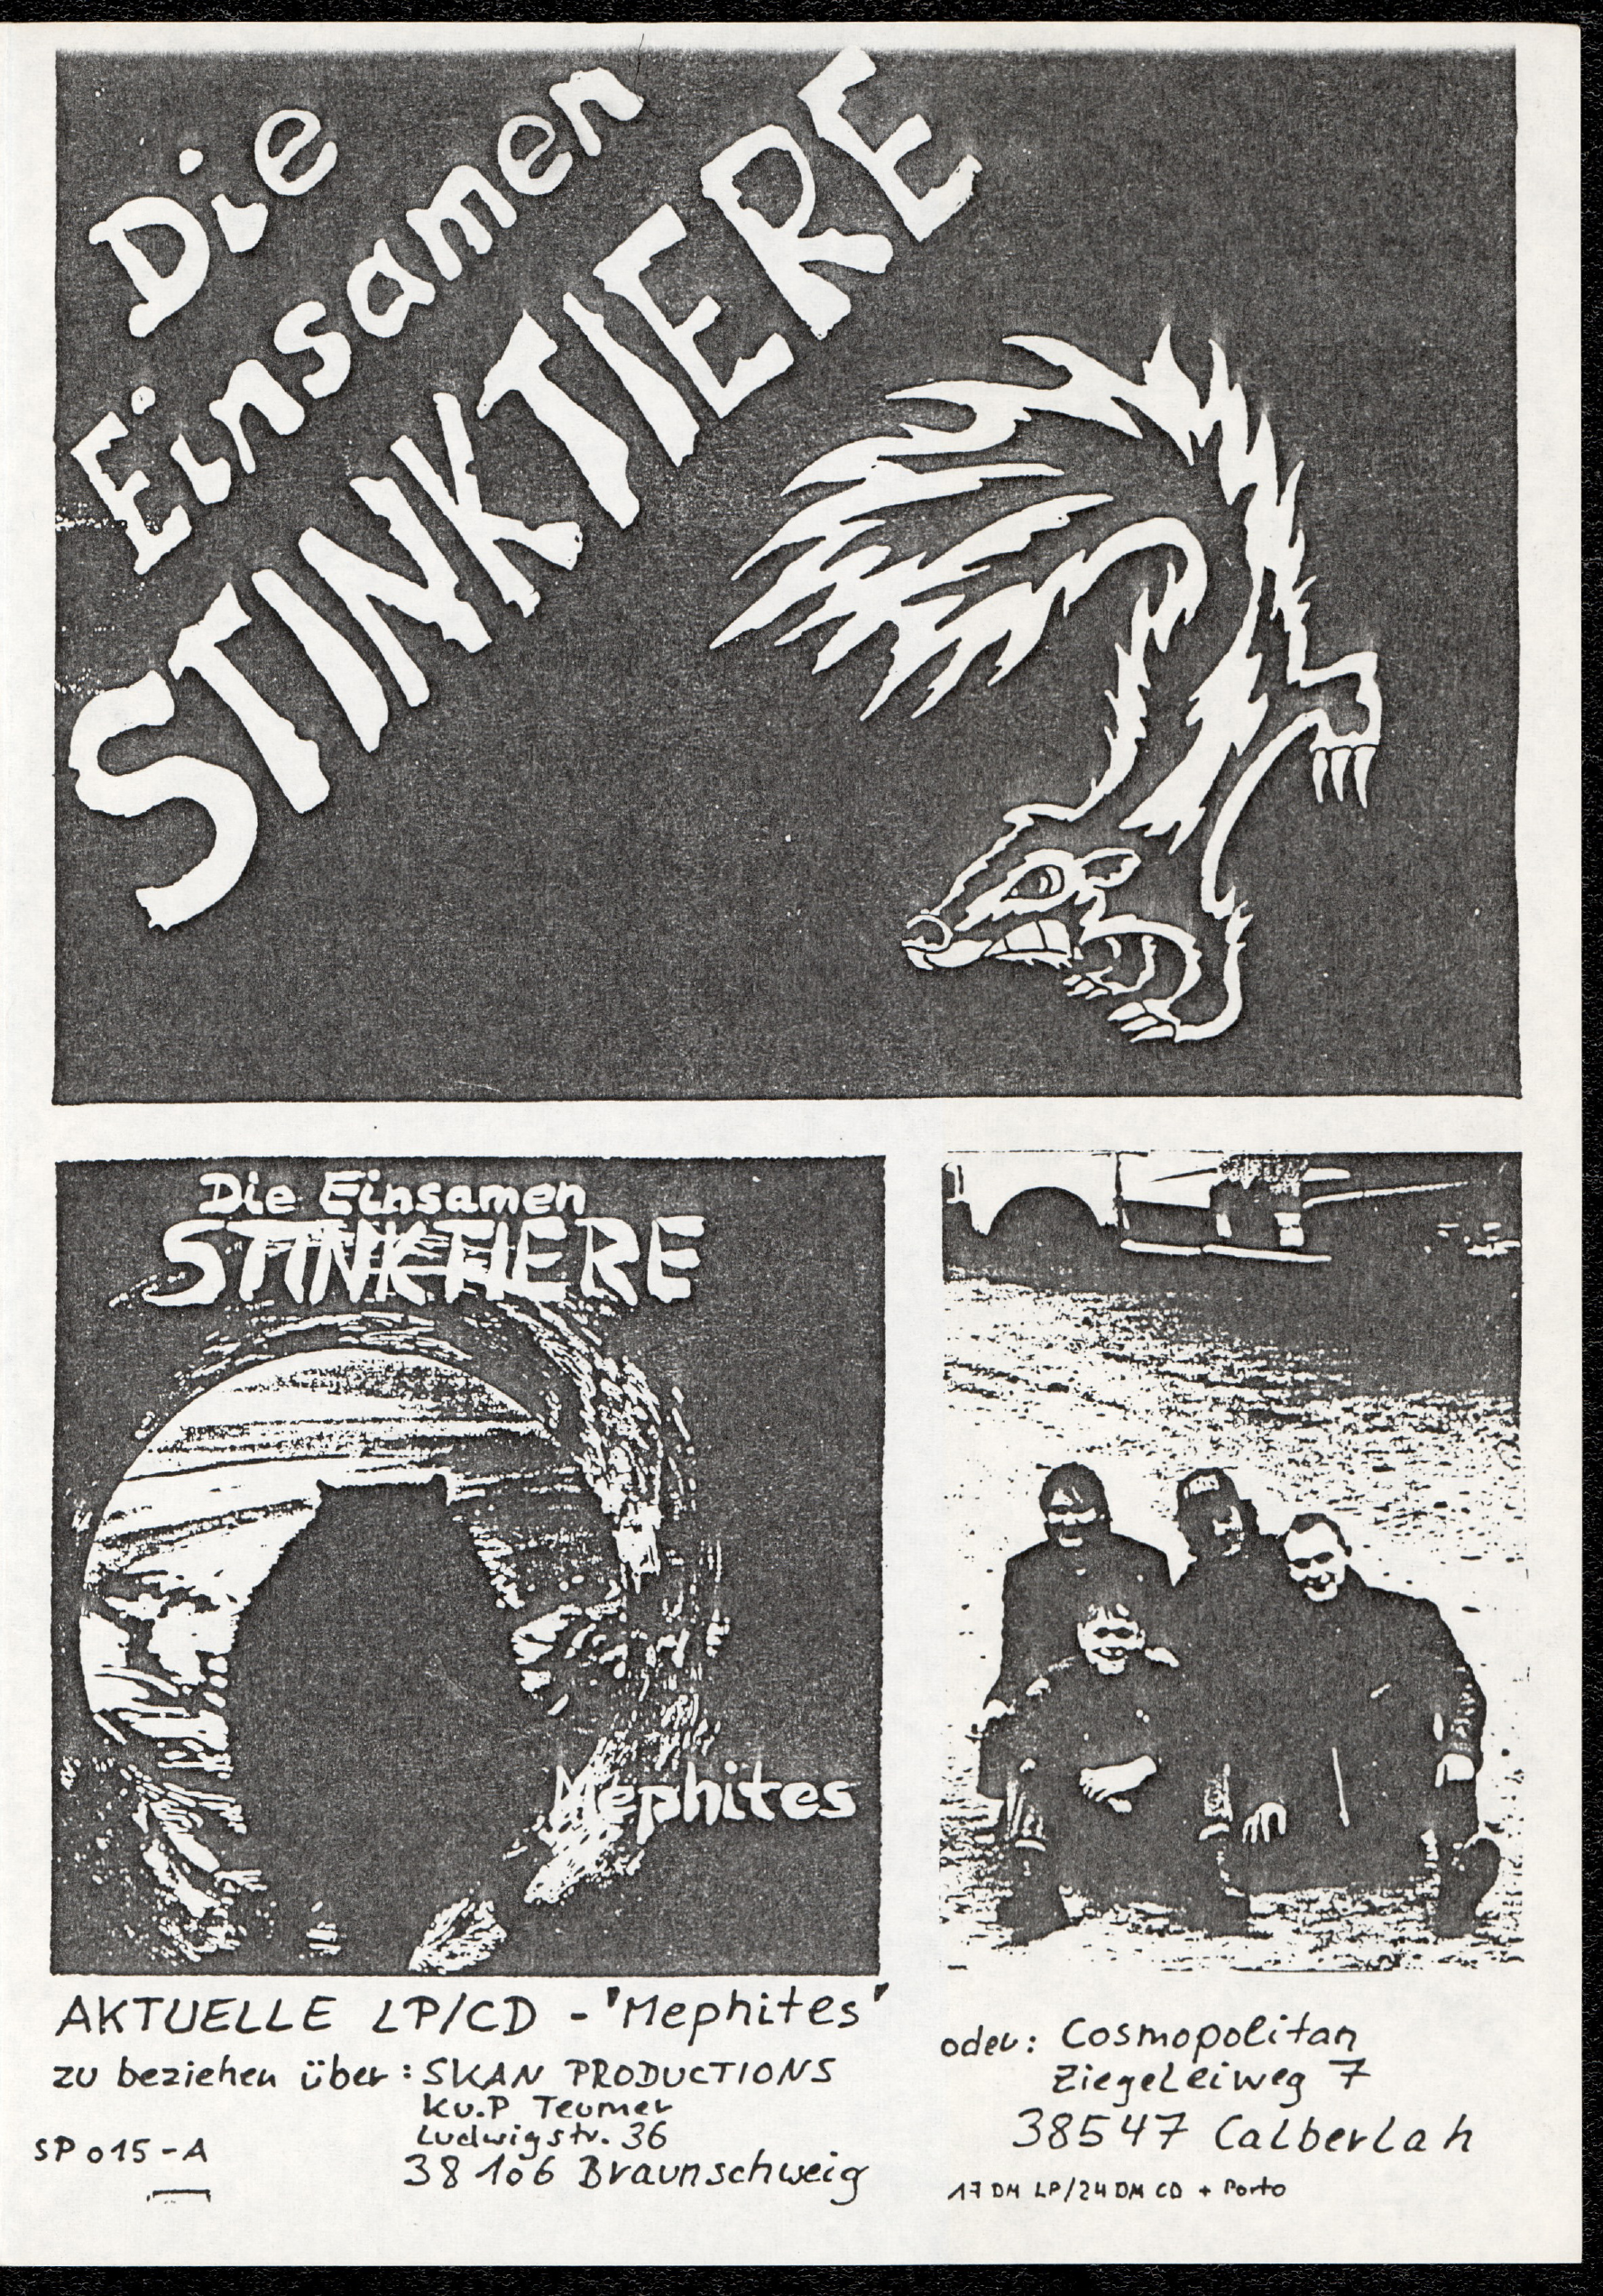 Die
Einsamen
STINKTIERE
Die Einsamen
STINKTIERE
Mephites
AKTUELLE LP/CD - 'Mephites'
zu beziehen über: SKAN PRODUCTIONS
K.u.P Teumer
Ludwigstr. 36
38106 Braunschweig
SP 015-A
oder: Cosmopolitan
Ziegeleiweg 7
38547 Calberlah
17 DM LP/24 DM CD + Porto